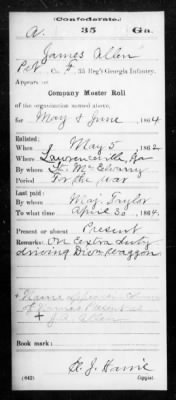 (Confederate.)
A. 35 Ga.
James Allen
Pvt, Co. F, 35 Reg't Georgia Infantry.
Appears on
Company Muster Roll
of the organization named above,
for May & June, 1864
Enlisted:
When May 5, 1862
Where Lawrenceville, Ga
By whom
Period For the war
Last paid:
By whom Maj. Taylor
To what time April 30, 1864.
Present or absent Present
Remarks: On extra duty
driving Div waggon
Name appears
of Names Present as
+ Allen
Book mark:
(642)
Copyist.